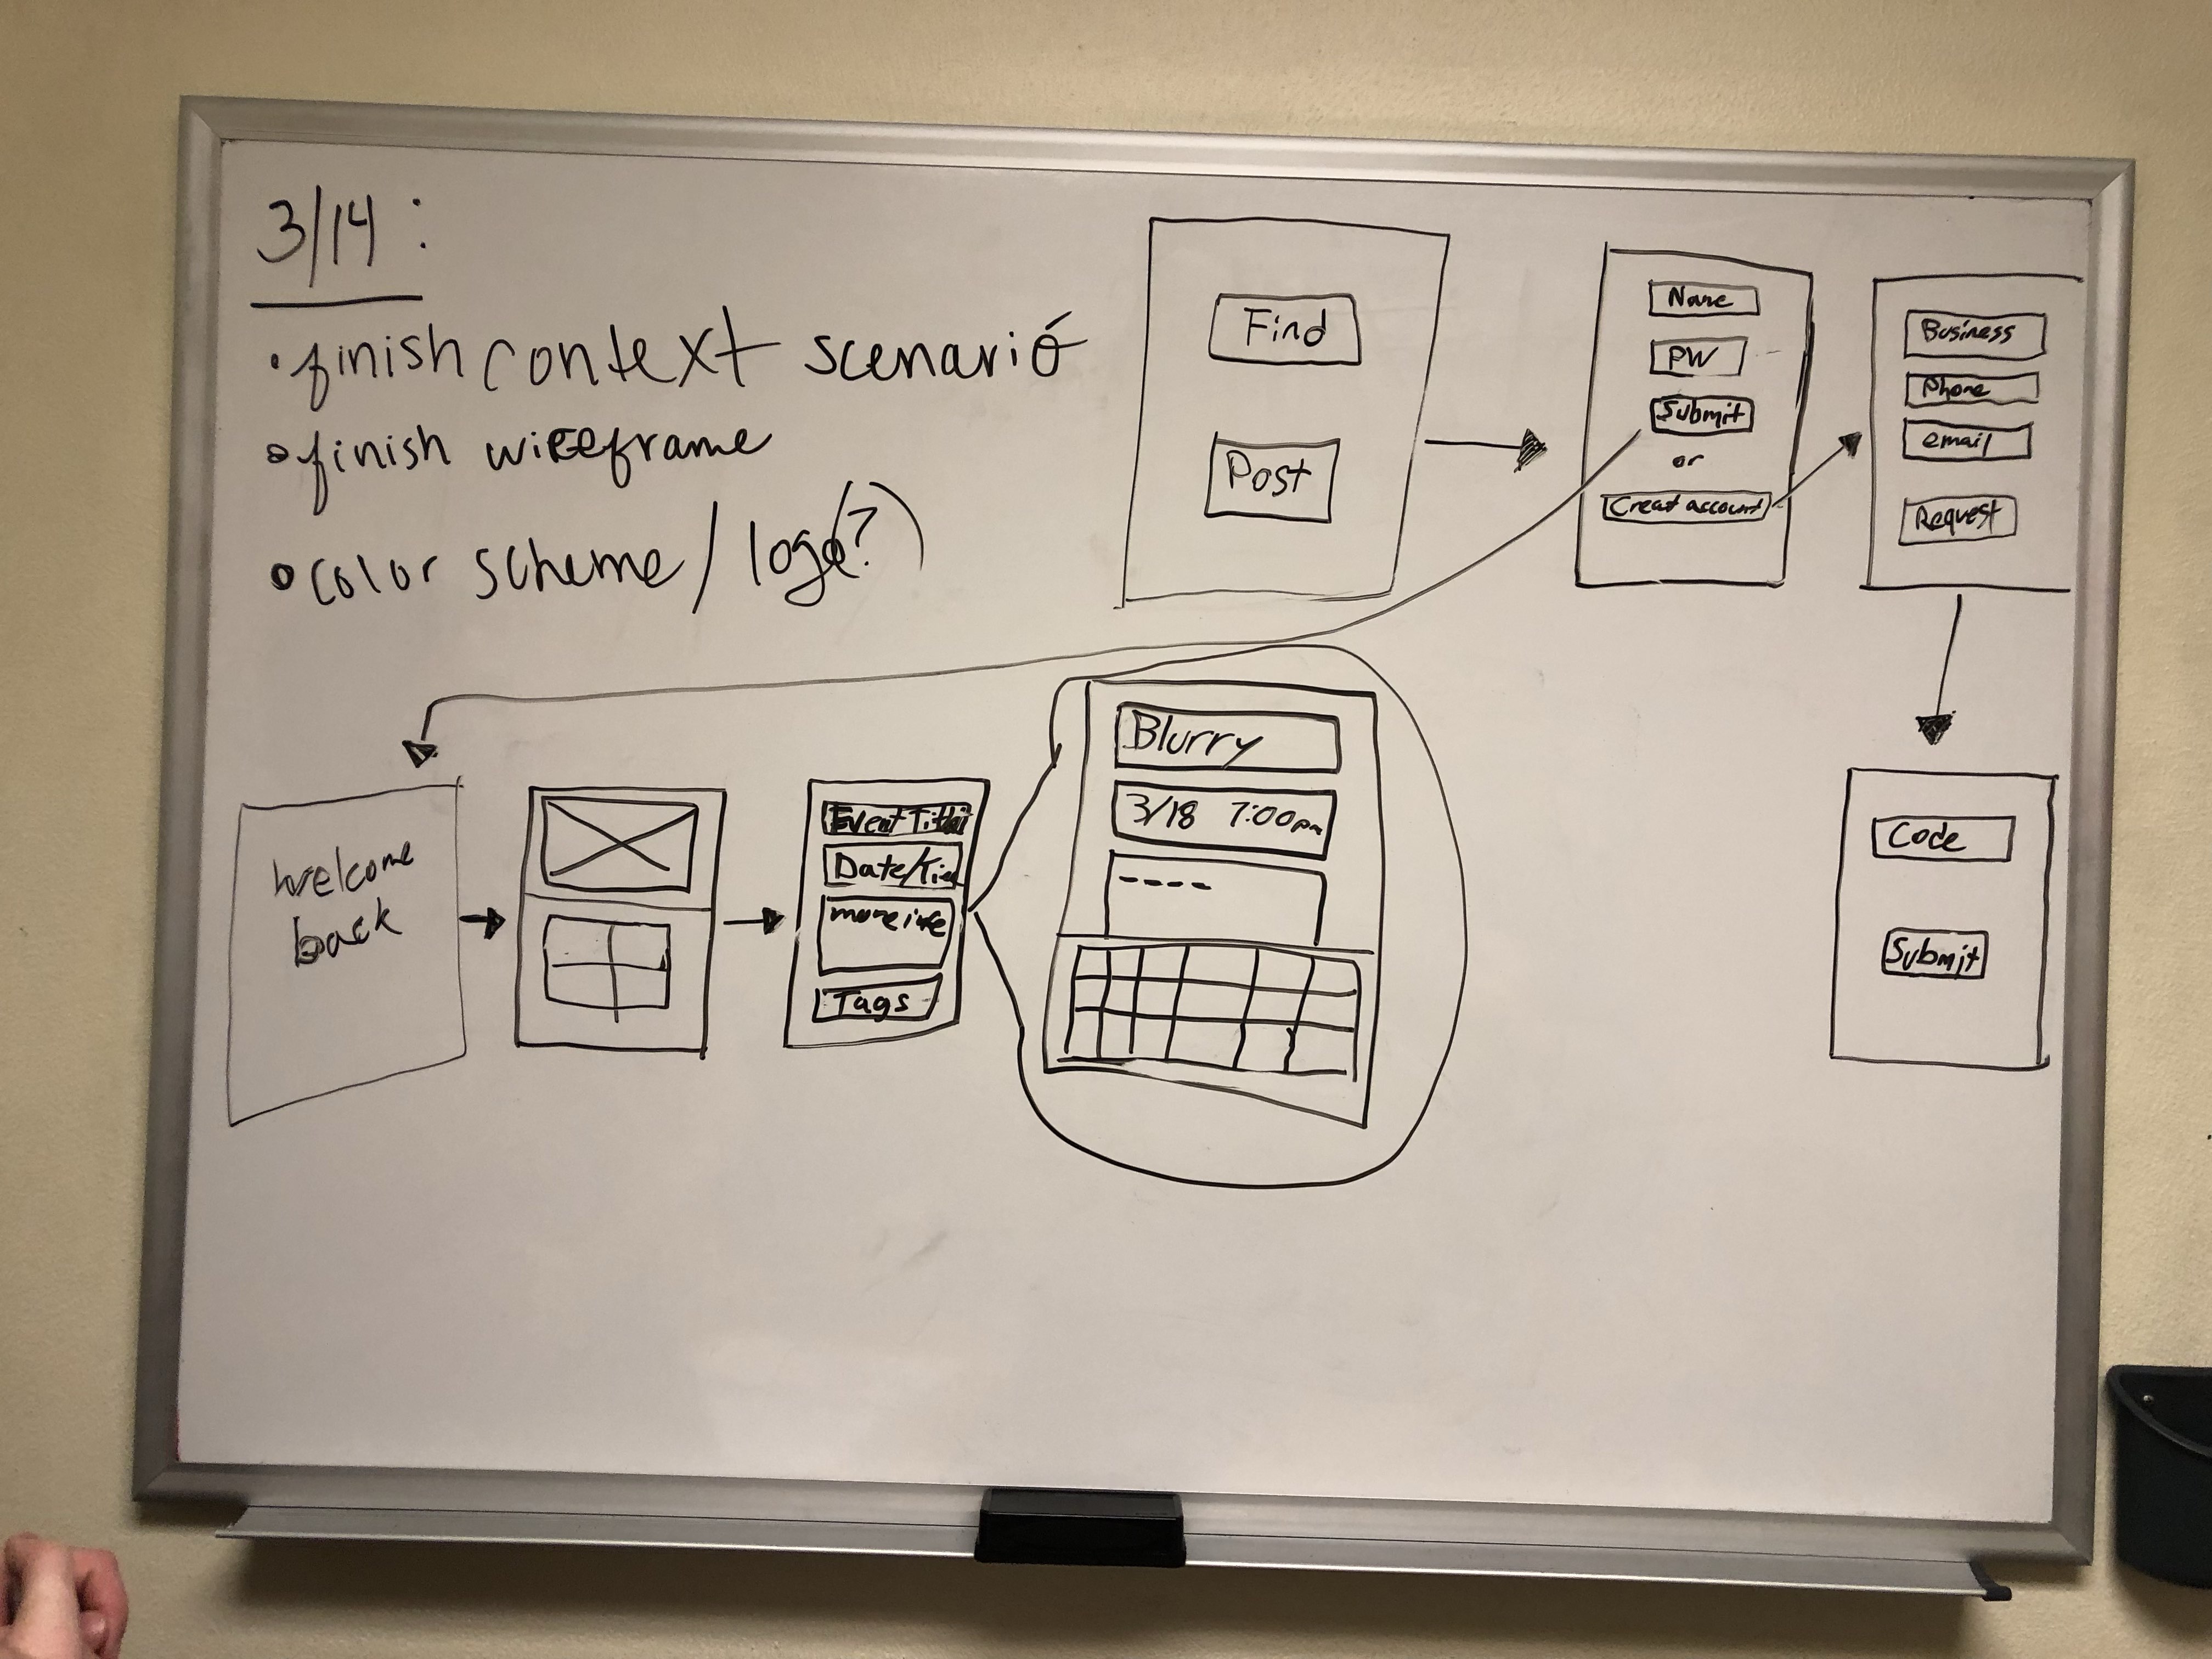 3/14:
• finish context scenario
• finish wireframe
• color scheme / logo(?)
Find
Post
Name
PW
Submit
or
Creat account
Business
Phone
email
Request
Code
Submit
welcome
back
Event Title
Date/Time
more info
Tags
Blurry
3/18 7:00pm
----